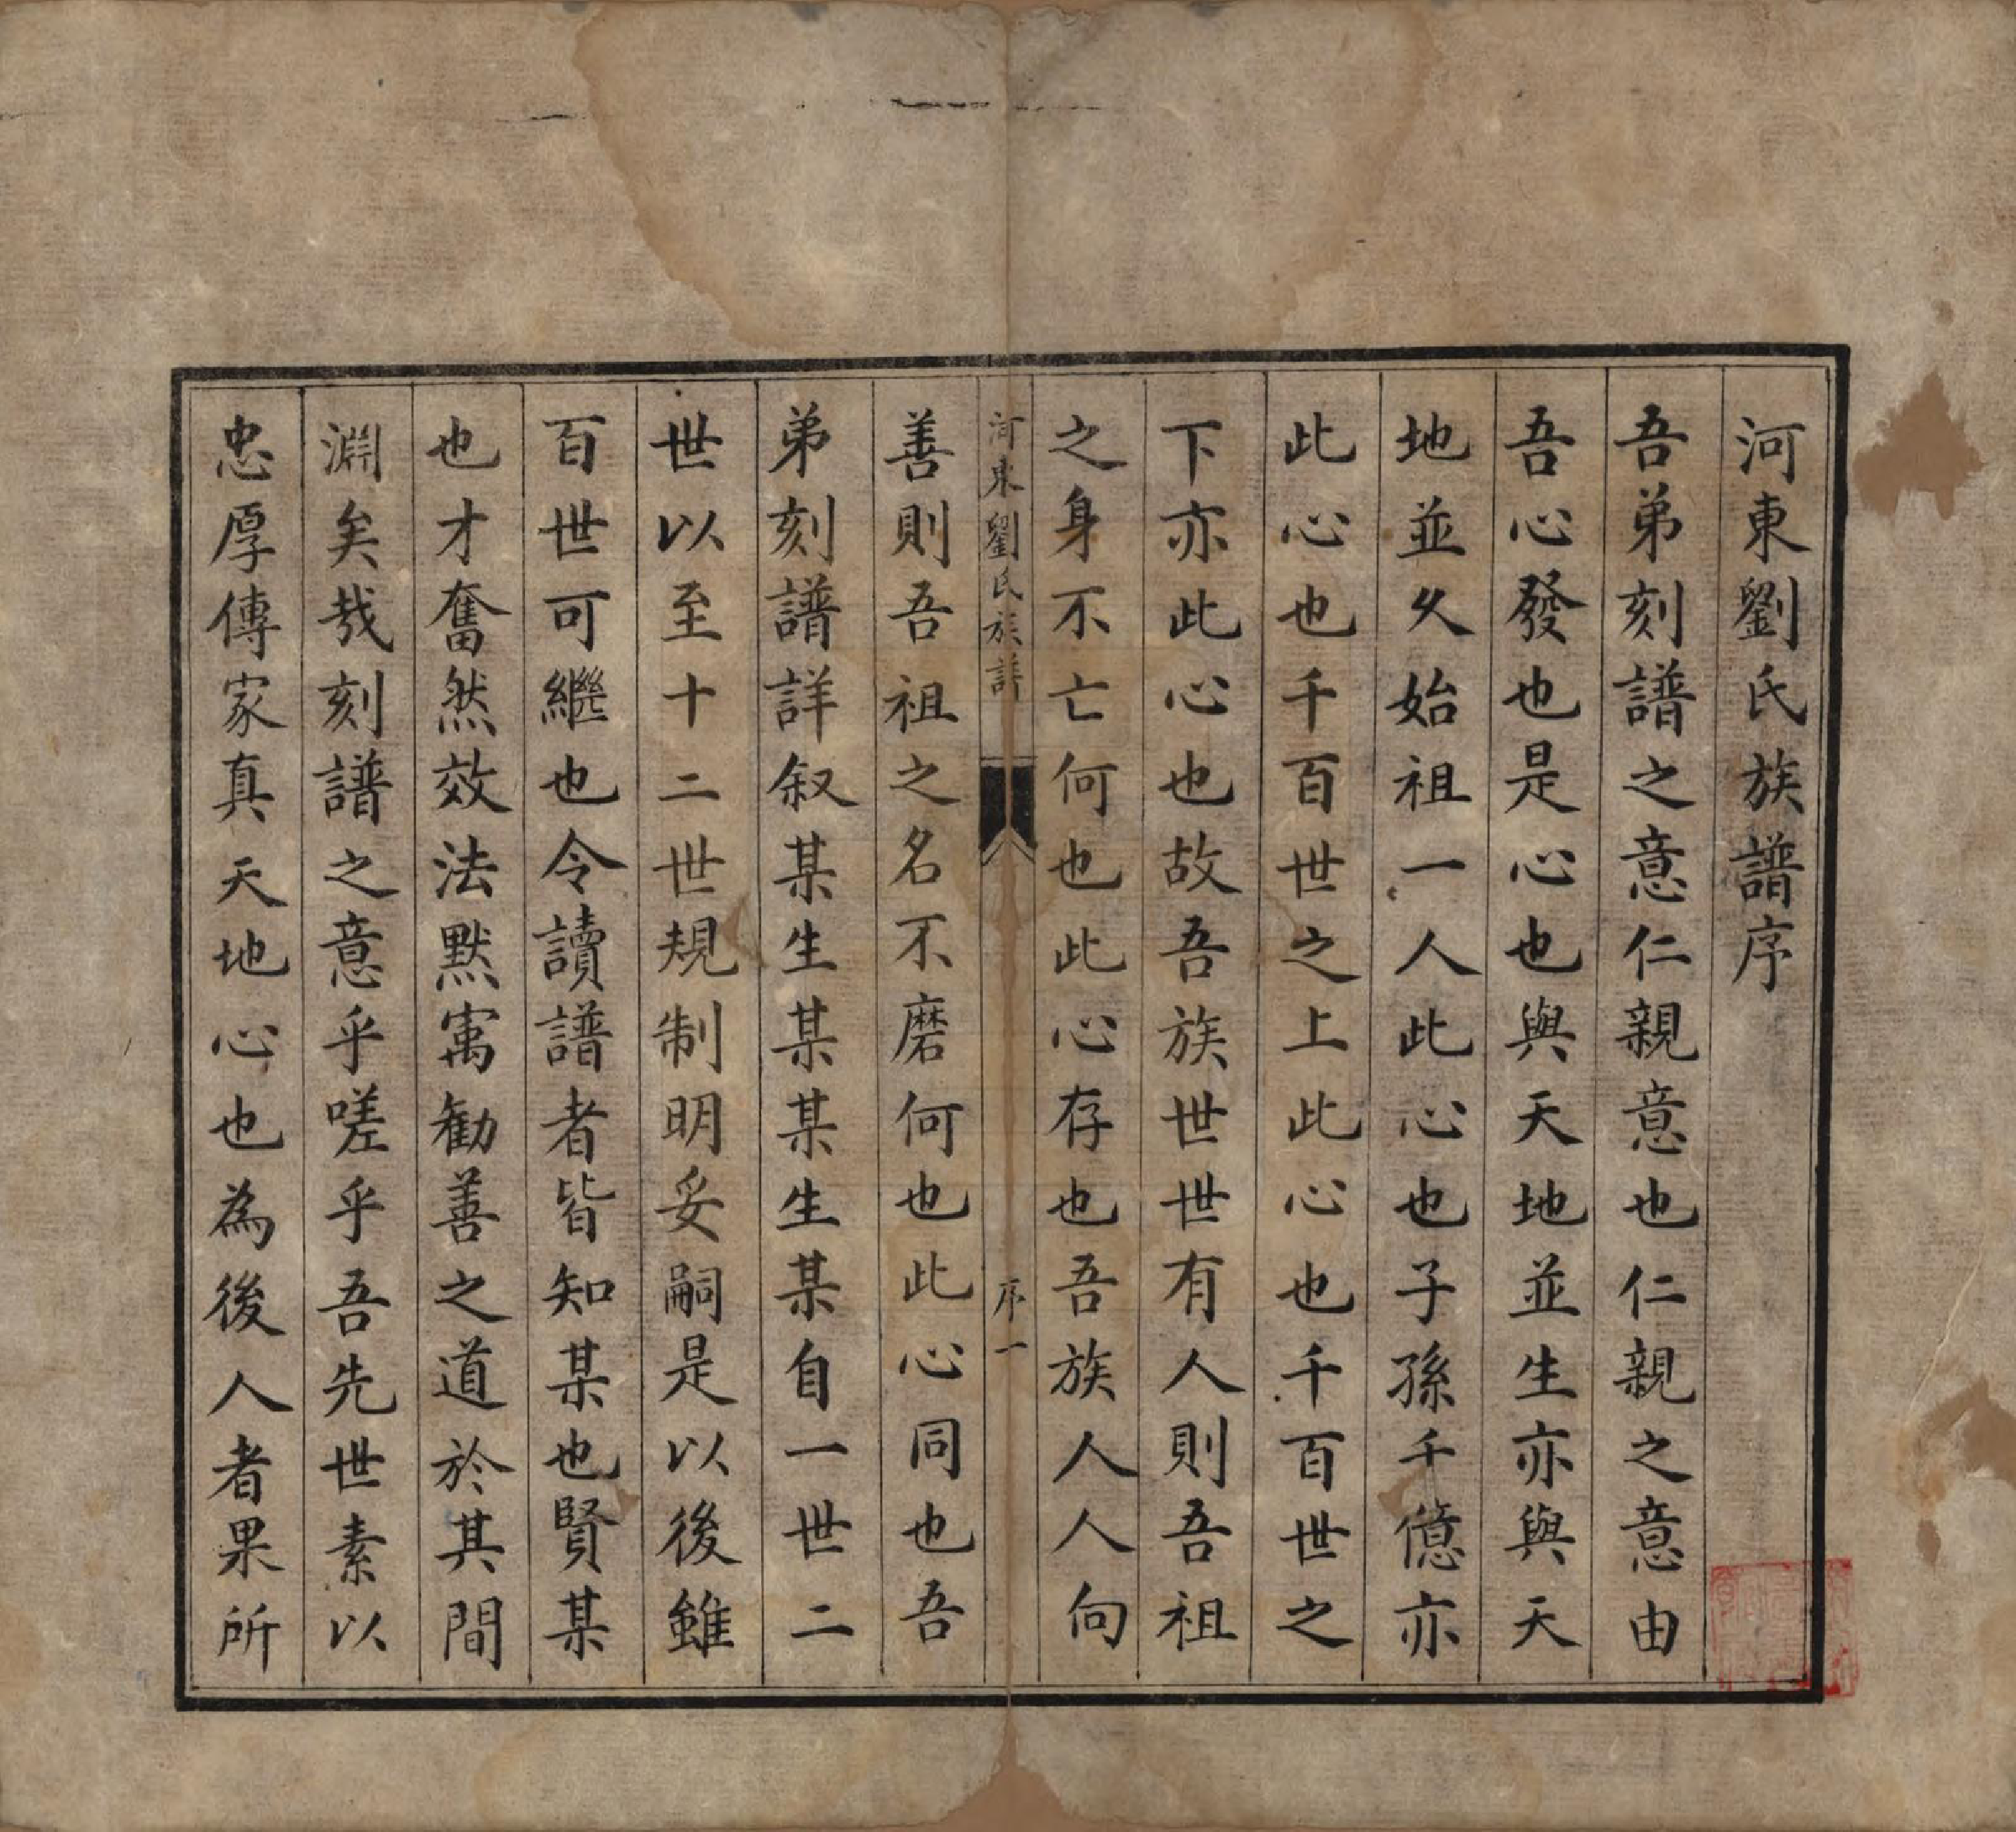 河東劉氏族譜序
吾弟刻譜之意仁親意也仁親之意由
吾心發也是心也與天地並生亦與天
地並久始祖一人此心也子孫千億亦
此心也千百世之上此心也千百世之
下亦此心也故吾族世世有人則吾祖
之身不亡何也此心存也吾族人人向
河東劉氏族譜
序一
善則吾祖之名不磨何也此心同也吾
弟刻譜詳叙某生某某生某自一世二
世以至十二世規制明妥嗣是以後雖
百世可繼也令讀譜者皆知某也賢某
也才奮然效法默寓勸善之道於其間
淵矣哉刻譜之意乎嗟乎吾先世素以
忠厚傳家真天地心也為後人者果所